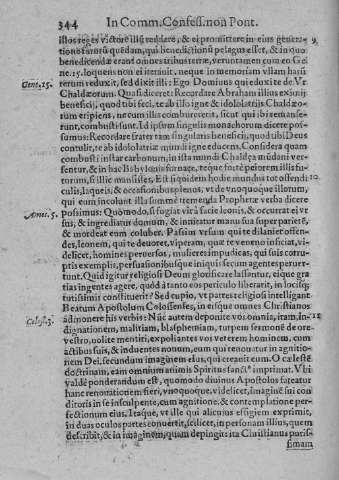 344 In Comm. Confess. non Pont.
illos reges victore illis reddere, & ei promittere in eius genera- 9
tione futurū quendam, qui benedictionū pelagus esset, & in quo
benedicendæ erant omnes tribus terræ, verumtamen cum eo Ge-
ne. 15. loquens non ei itenuit, neque in memoriam vllam harū
Gene. 15.
rerum reduxit, sed dixit illi: Ego Dominus qui eduxi te de Vr
Chaldæorum. Quasi diceret: Recordare Abraham illius eximij
beneficij, quod tibi feci, te ab illo igne & idololatrijs Chaldæo-
rum eripiens, necum illis combureret, sicut qui ibi remanse-
runt, combusti sunt. Id ipsum singulis monachorum dicere pos-
sumus: Recordare frater tam singularis beneficij, quod tibi Deus
contulit, te ab idololatriæ mundi igne educens. Considera quam
combusti instar carbonum, in ista mundi Chaldæa mūdani ver-
sentur, & in hac Babylonis fornace, teque forte peiorem illis fu-
turum, si illic mansisses. Est siquidem hodie mundus tot offendi- 10
culis, laqueis, & occasionibus plenus, vt de vnoquoque illorum,
qui eum incolunt illa summè tremenda Prophetæ verba dicere
Amos. 5.
possimus: Quomodo, si fugiat vir à facie leonis, & occurrat ei vr
sus, & ingrediatur domum, & innitatur manu sua super parietē,
& mordeat eum coluber. Passim vrsum qui te dilaniet offen-
des, leonem, qui te deuoret, viperam, quæ te veneno inficiat, vi-
delicet, homines peruersos, mulieres impudicas, qui suis corru-
ptis exemplis, persuasionibusque iniquis secum agentes peruer-
tunt. Quid igitur religiosi Deum glorificare lassantur, eique gra
tias ingentes agere, quòd à tanto eos periculo liberauit, in locisq;
tutissimis constituerit? Sed cupio, vt patres religiosi intelligant
Beatum Apostolum Colossenses, in eisque omnes Christianos
Coloss. 3.
admonere his verbis: Nūc autem deponite vos omnia, iram, in- 11
dignationem, malitiam, blasphemiam, turpem sermonē de ore
vestro, nolite mentiri, expoliantes vos veterem hominem, cum
actibus suis, & induentes nouum, eum qui renouatur in agnitio-
nem Dei, secundum imaginem eius, qui creauit eum. O cælestē
doctrinam, eam omnium animis Spiritus sanctꝰ imprimat. Vbi
valdè ponderandum est, quomodo diuinus Apostolus fateatur
hanc renouationem fieri, vnoquoque, videlicet, imaginē sui con
ditoris in se insculpente, cum agnitione, & contemplatione per-
fectionum eius. Itaque, vt ille qui alicuius effigiem exprimit,
in duas oculos partes conuertit, scilicet, in personam illius, quem
describit, & in imaginem, quam depingit: ita Christianus puris-
simam